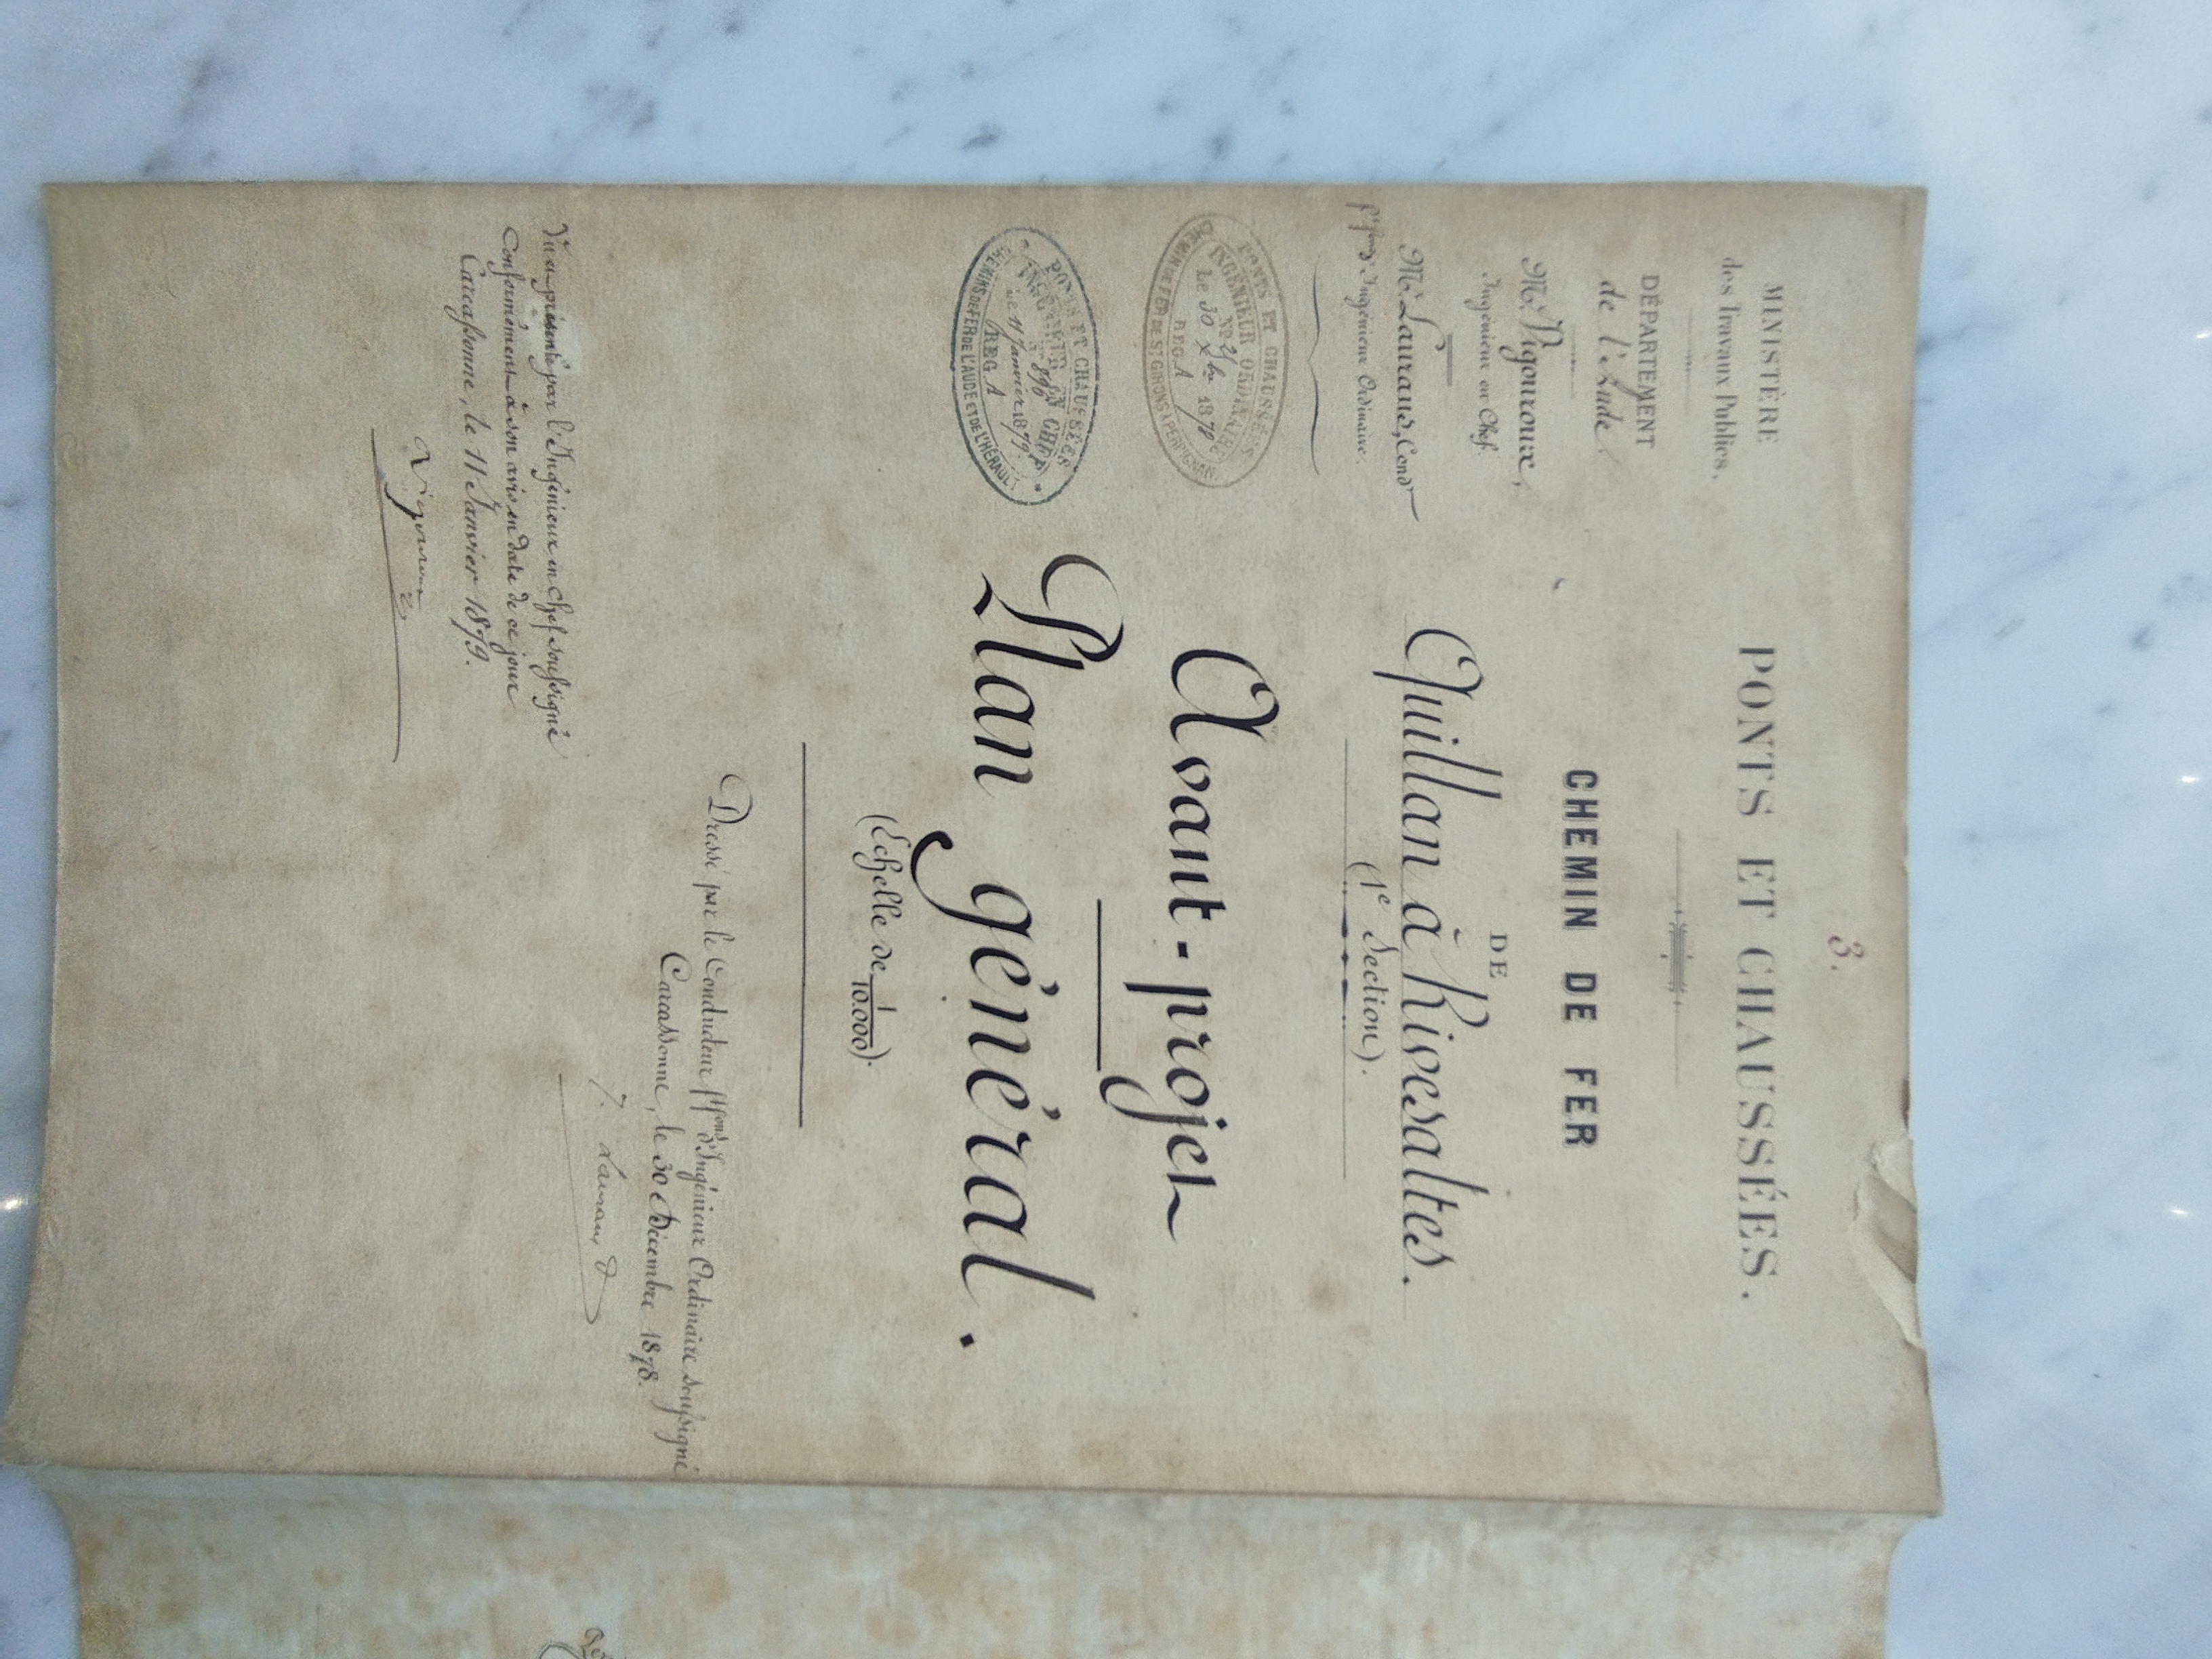 3.
MINISTÈRE
des Travaux Publics.
DÉPARTEMENT
de l'Aude.
Mr. Vigouroux,
Ingénieur en Chef.
Mr. Laurans, Condr
ffonsd'Ingénieur Ordinaire.
PONTS ET CHAUSSÉES
INGÉNIEUR ORDINAIRE
Le 30 Xbre 1878
REG. A
CHEMIN DE FER DE ST GIRONS À PERPIGNAN
PONTS ET CHAUSSÉES
INGÉNIEUR EN CHEF
896
Le 11 Janvier 1879.
REG. A
CHEMINS DE FER DE L'AUDE ET DE L'HÉRAULT
PONTS ET CHAUSSÉES.
CHEMIN DE FER
DE
Quillan à Rivesaltes.
(1e Section).
Avant-projet
Plan général.
(Echelle de 1/10.000).
Dressé par le Conducteur ffonsd'Ingénieur Ordinaire soussigné
Carcassonne, le 30 Décembre 1878.
J. Laurans
Vu et présenté par l'Ingénieur en Chef soussigné
Conformément à son avis en date de ce jour
Carcassonne, le 11 Janvier 1879.
Vigouroux